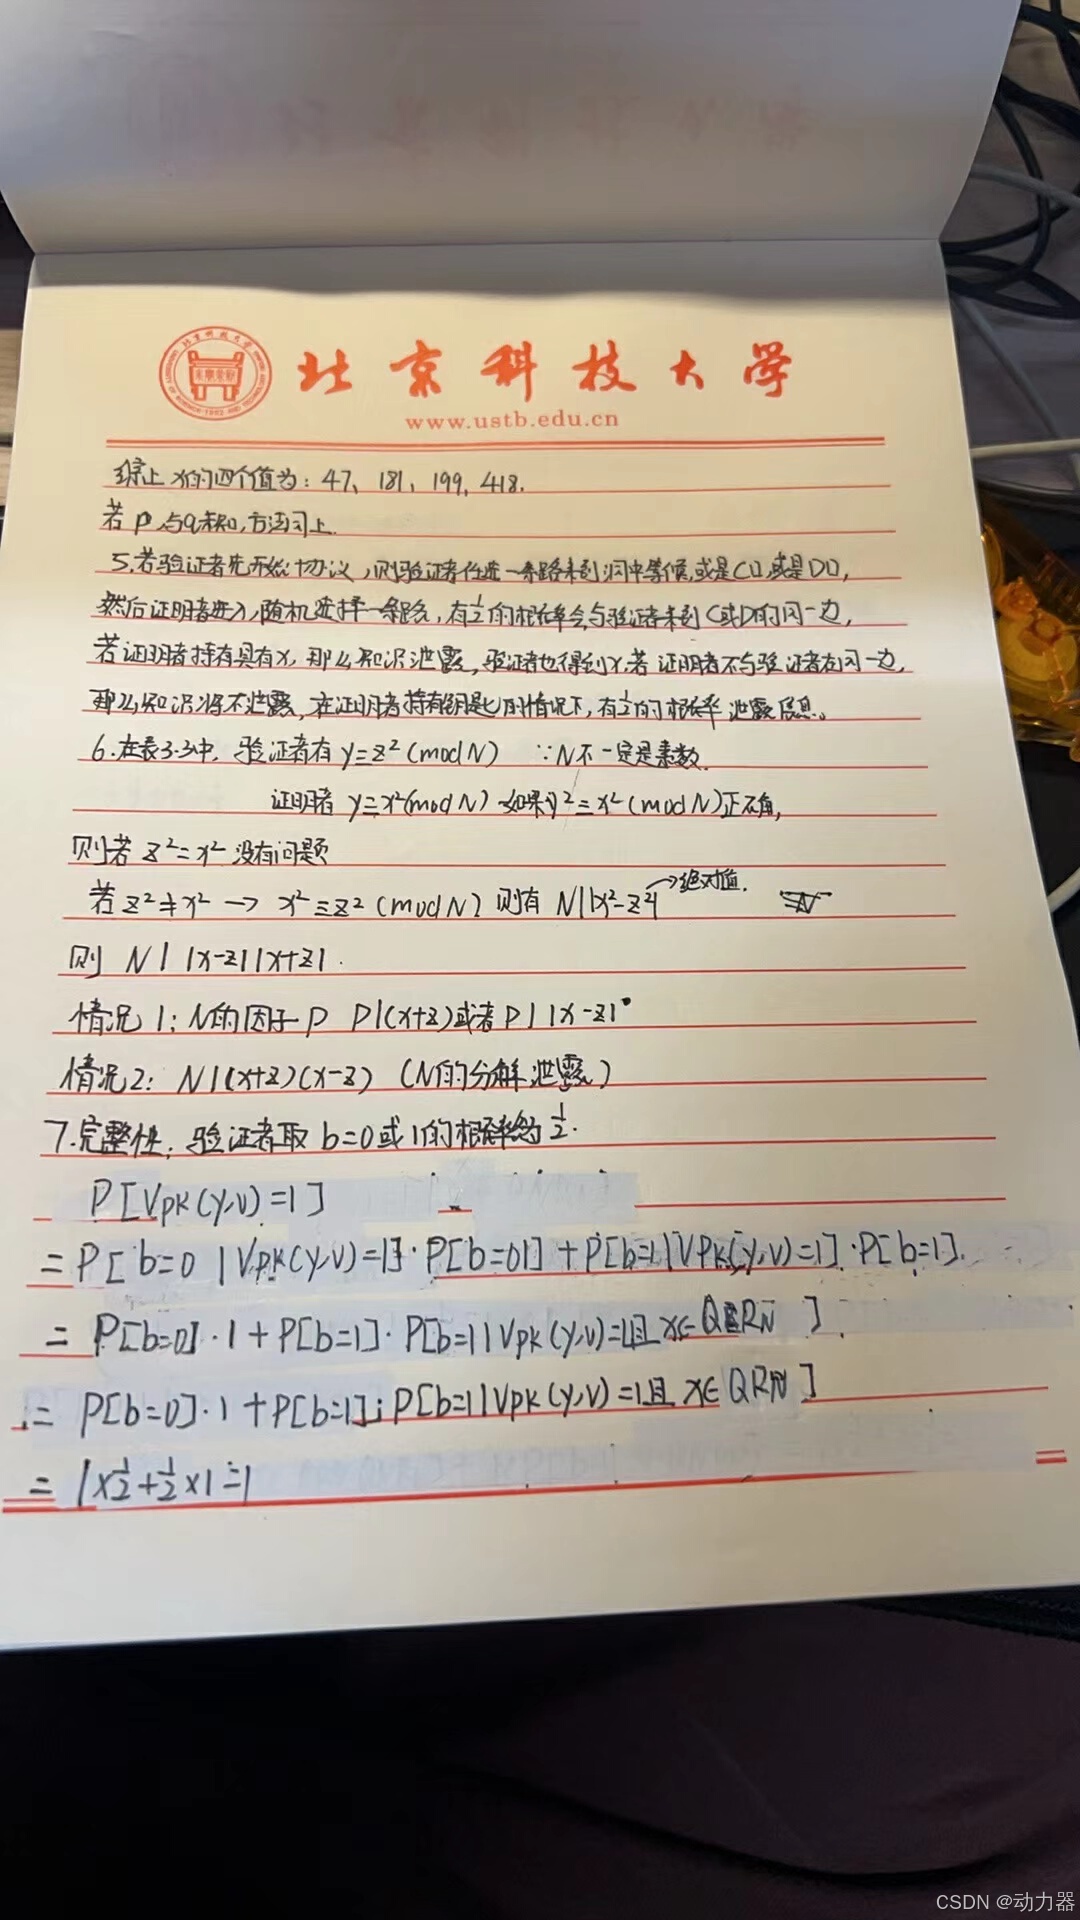 北京科技大学
www.ustb.edu.cn
综上 x的四个值为: 47、181、199、418.
若 p 与q未知,方法同上.
5.若验证者先开始协议,则验证者任选一条路来到洞中等候,或是C口,或是D口,
然后证明者进入,随机选择一条路,有1/2的概率会与验证者来到C或D的同一边,
若证明者持有具有x,那么知识泄露,验证者也得到x,若证明者不与验证者在同一边,
那么知识将不泄露,在证明者持有钥匙的情况下,有1/2的概率泄露信息。
6.在表3.3中,验证者有 y=z² (mod N) ∵N不一定是素数.
证明者 y=x²(mod N) 如果y²≡x² (mod N)正确,
则若 z²=x² 没有问题
若 z²≠x² → x²≡z² (mod N) 则有 N||x²-z²| →绝对值.
则 N| |x-z||x+z|.
情况1: N的因子 P P|(x+z)或者P| |x-z|
情况2: N|(x+z)(x-z) (N的分解泄露)
7.完整性:验证者取 b=0或1的概率均为1/2.
P[Vpk(y,v)=1]
=P[b=0 |Vpk(y,v)=1]·P[b=0]+P[b=1|Vpk(y,v)=1]·P[b=1].
= P[b=0]·1+P[b=1]·P[b=1|Vpk(y,v)=1且 x∈QRN]
= P[b=0]·1+P[b=1]·P[b=1|Vpk(y,v)=1且 x∈QRN]
= 1×1/2+1/2×1=1
CSDN @动力器